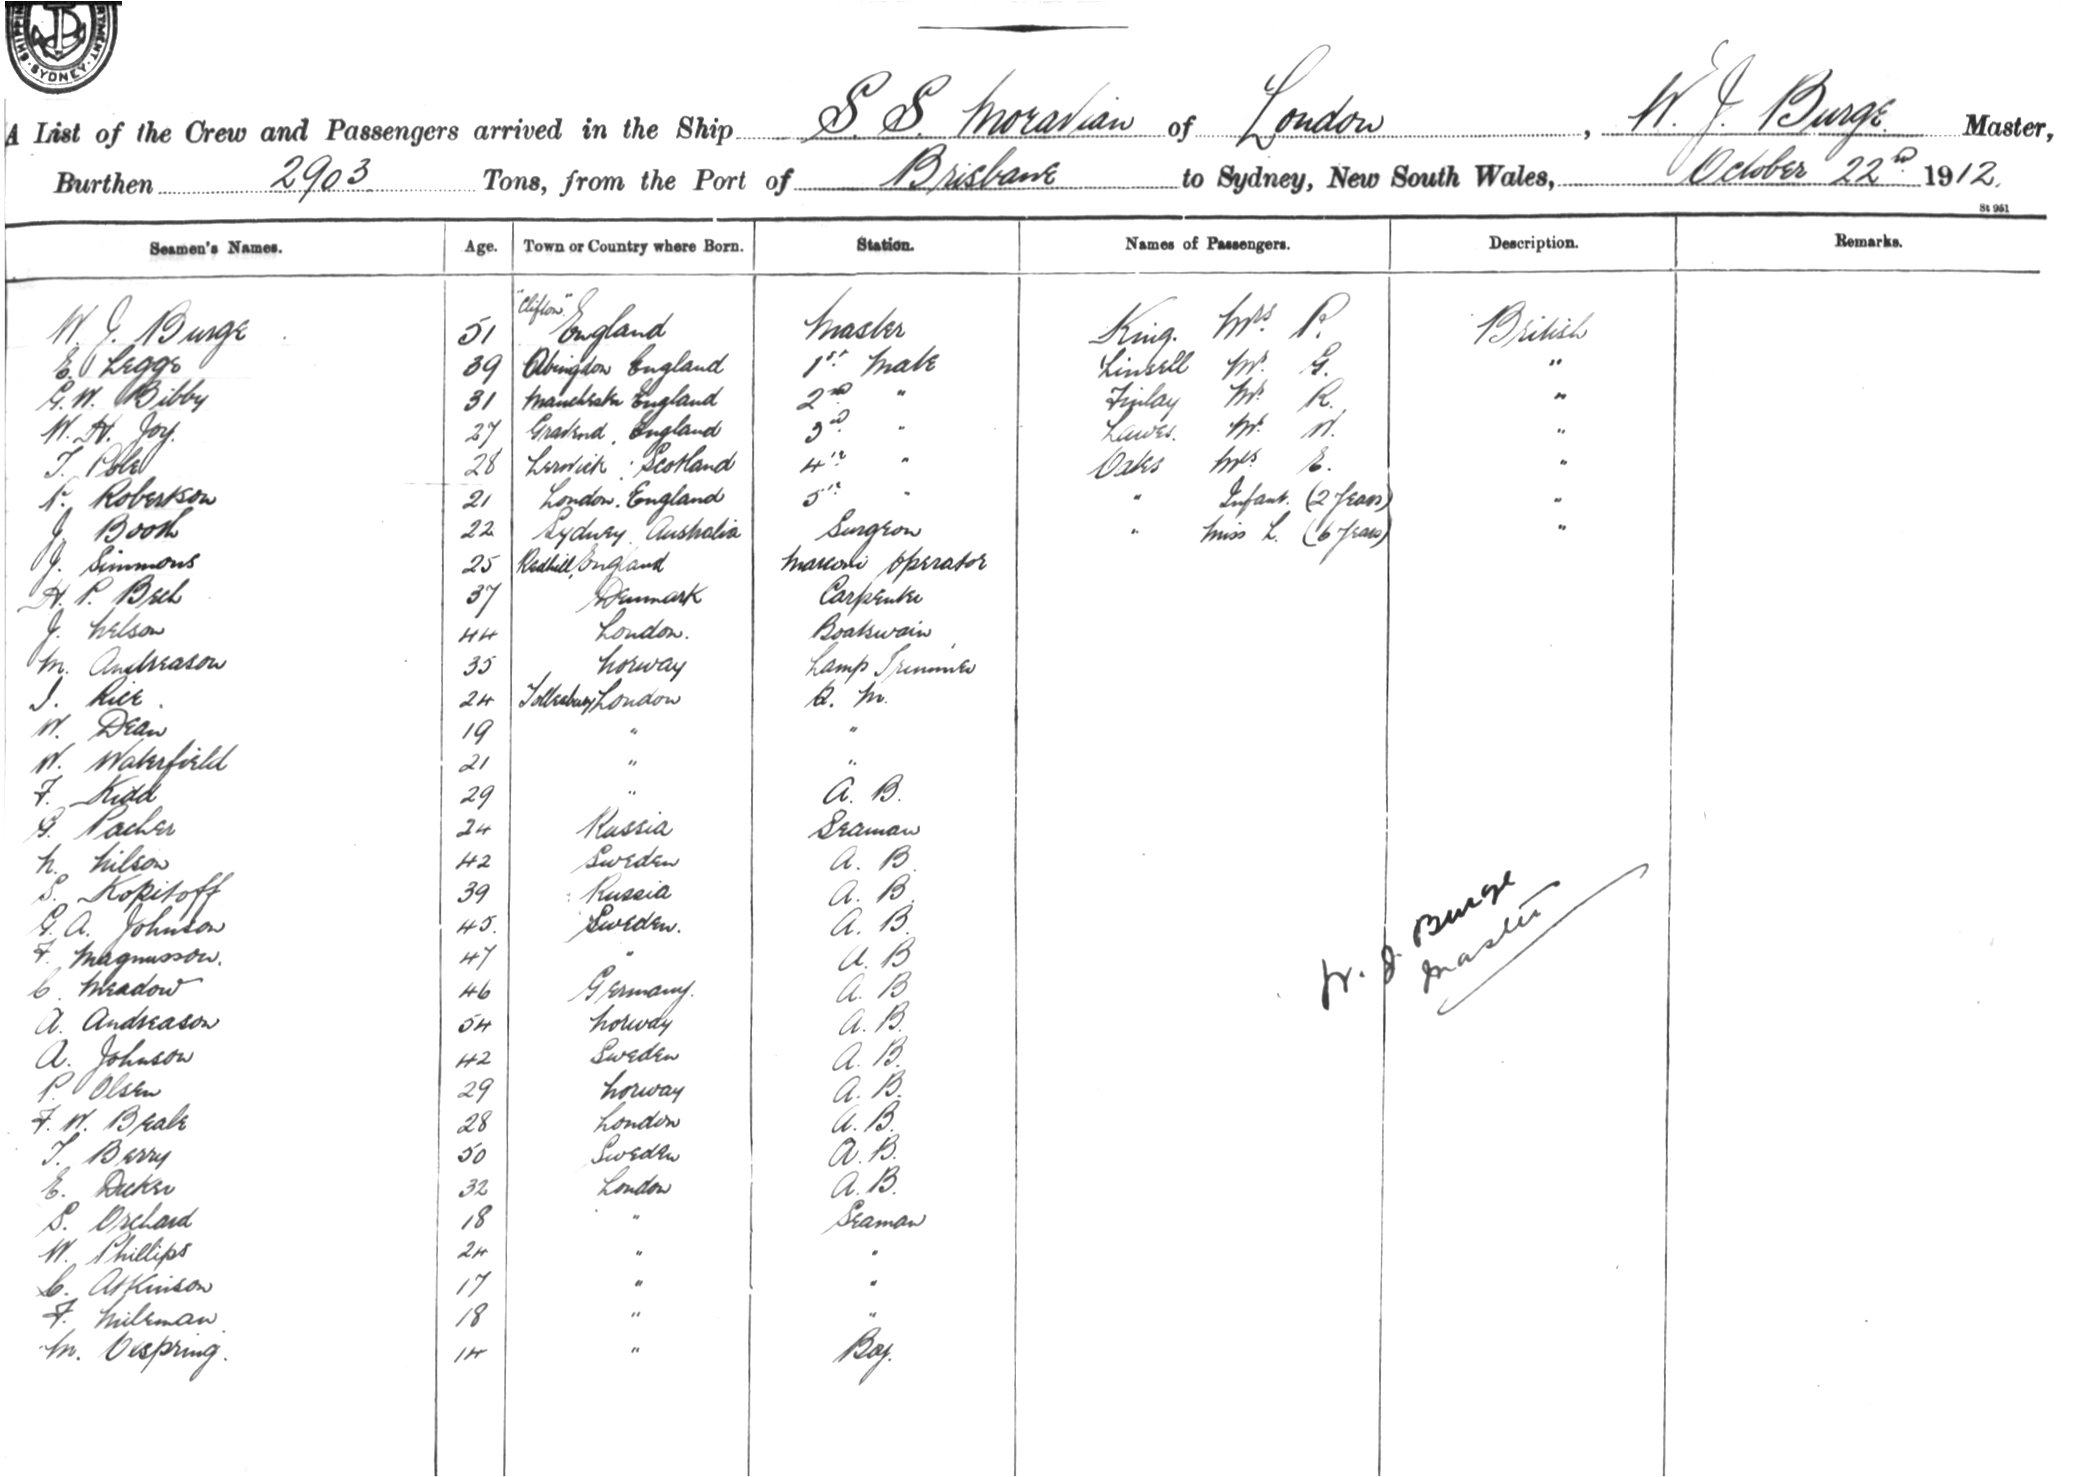 SYDNEY
A List of the Crew and Passengers arrived in the Ship S. S. Moravian of London, W. J. Burge Master,
Burthen 2903 Tons, from the Port of Brisbane to Sydney, New South Wales, October 22nd 1912.
St 961
Seamen's Names. Age. Town or Country where Born. Station. Names of Passengers. Description. Remarks.
W. J. Burge 51 "Clifton" England Master King. Mrs. P. British
E. Legge 39 Abingdon England 1st Mate Linsell Mr. G. "
G. W. Bibby 31 Manchester England 2nd " Finlay Mr. R. "
W. H. Joy. 27 Gravend, England 3rd " Lawes. Mr. W. "
T. Pole 28 Lerwick : Scotland 4th " Oates Mrs. E. "
Robertson 21 London. England 5th " " Infant. (2 Years) "
J. Booth 22 Sydney, Australia Surgeon " Miss L. (6 Years) "
J. Simmons 25 Redhill, England Marconi Operator
H. P. Bech 37 Denmark Carpenter
J. Nelson 44 London. Boatswain
M. Andreason 35 Norway Lamp Trimmer
Rice. 24 Tollesbury London Q. M.
W. Dean 19 " "
W. Waterfield 21 " "
F. Kidd 29 " A. B.
G. Pacher 24 Russia Seaman
N. Nilson 42 Sweden A. B.
S. Kopitoff 39 Russia A. B.
G. A. Johnson 45. Sweden. A. B.
F. Magnusson. 47 " A. B
C. Meadow 46 Germany. A. B
A. Andreason 54 Norway A. B.
A. Johnson 42 Sweden A. B.
P. Olsen 29 Norway A. B.
F. W. Beale 28 London A. B.
T. Berry 50 Sweden A. B.
E. Decker 32 London A. B.
S. Orchard 18 " Seaman
W. Phillips 24 " "
C. Atkinson 17 " "
F. Mileman 18 " "
M. Oespring. 14 " Boy.
W. J. Burge
Master